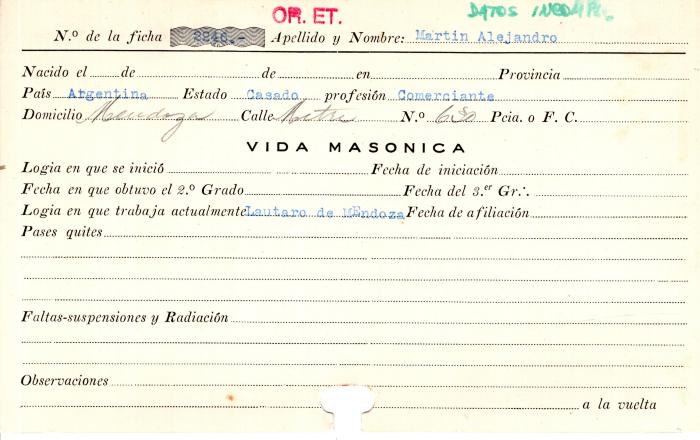 OR. ET. DATOS INCOMPL
N.º de la ficha 2246.- Apellido y Nombre: Martin Alejandro
Nacido el de de en Provincia
País Argentina Estado Casado profesión Comerciante
Domicilio Mendoza Calle Mitre N.º 630 Pcia. o F. C.
VIDA MASONICA
Logia en que se inició Fecha de iniciación
Fecha en que obtuvo el 2.º Grado Fecha del 3.er Gr.·.
Logia en que trabaja actualmente Lautaro de MEndoza Fecha de afiliación
Pases quites
Faltas-suspensiones y Radiación
Observaciones
a la vuelta